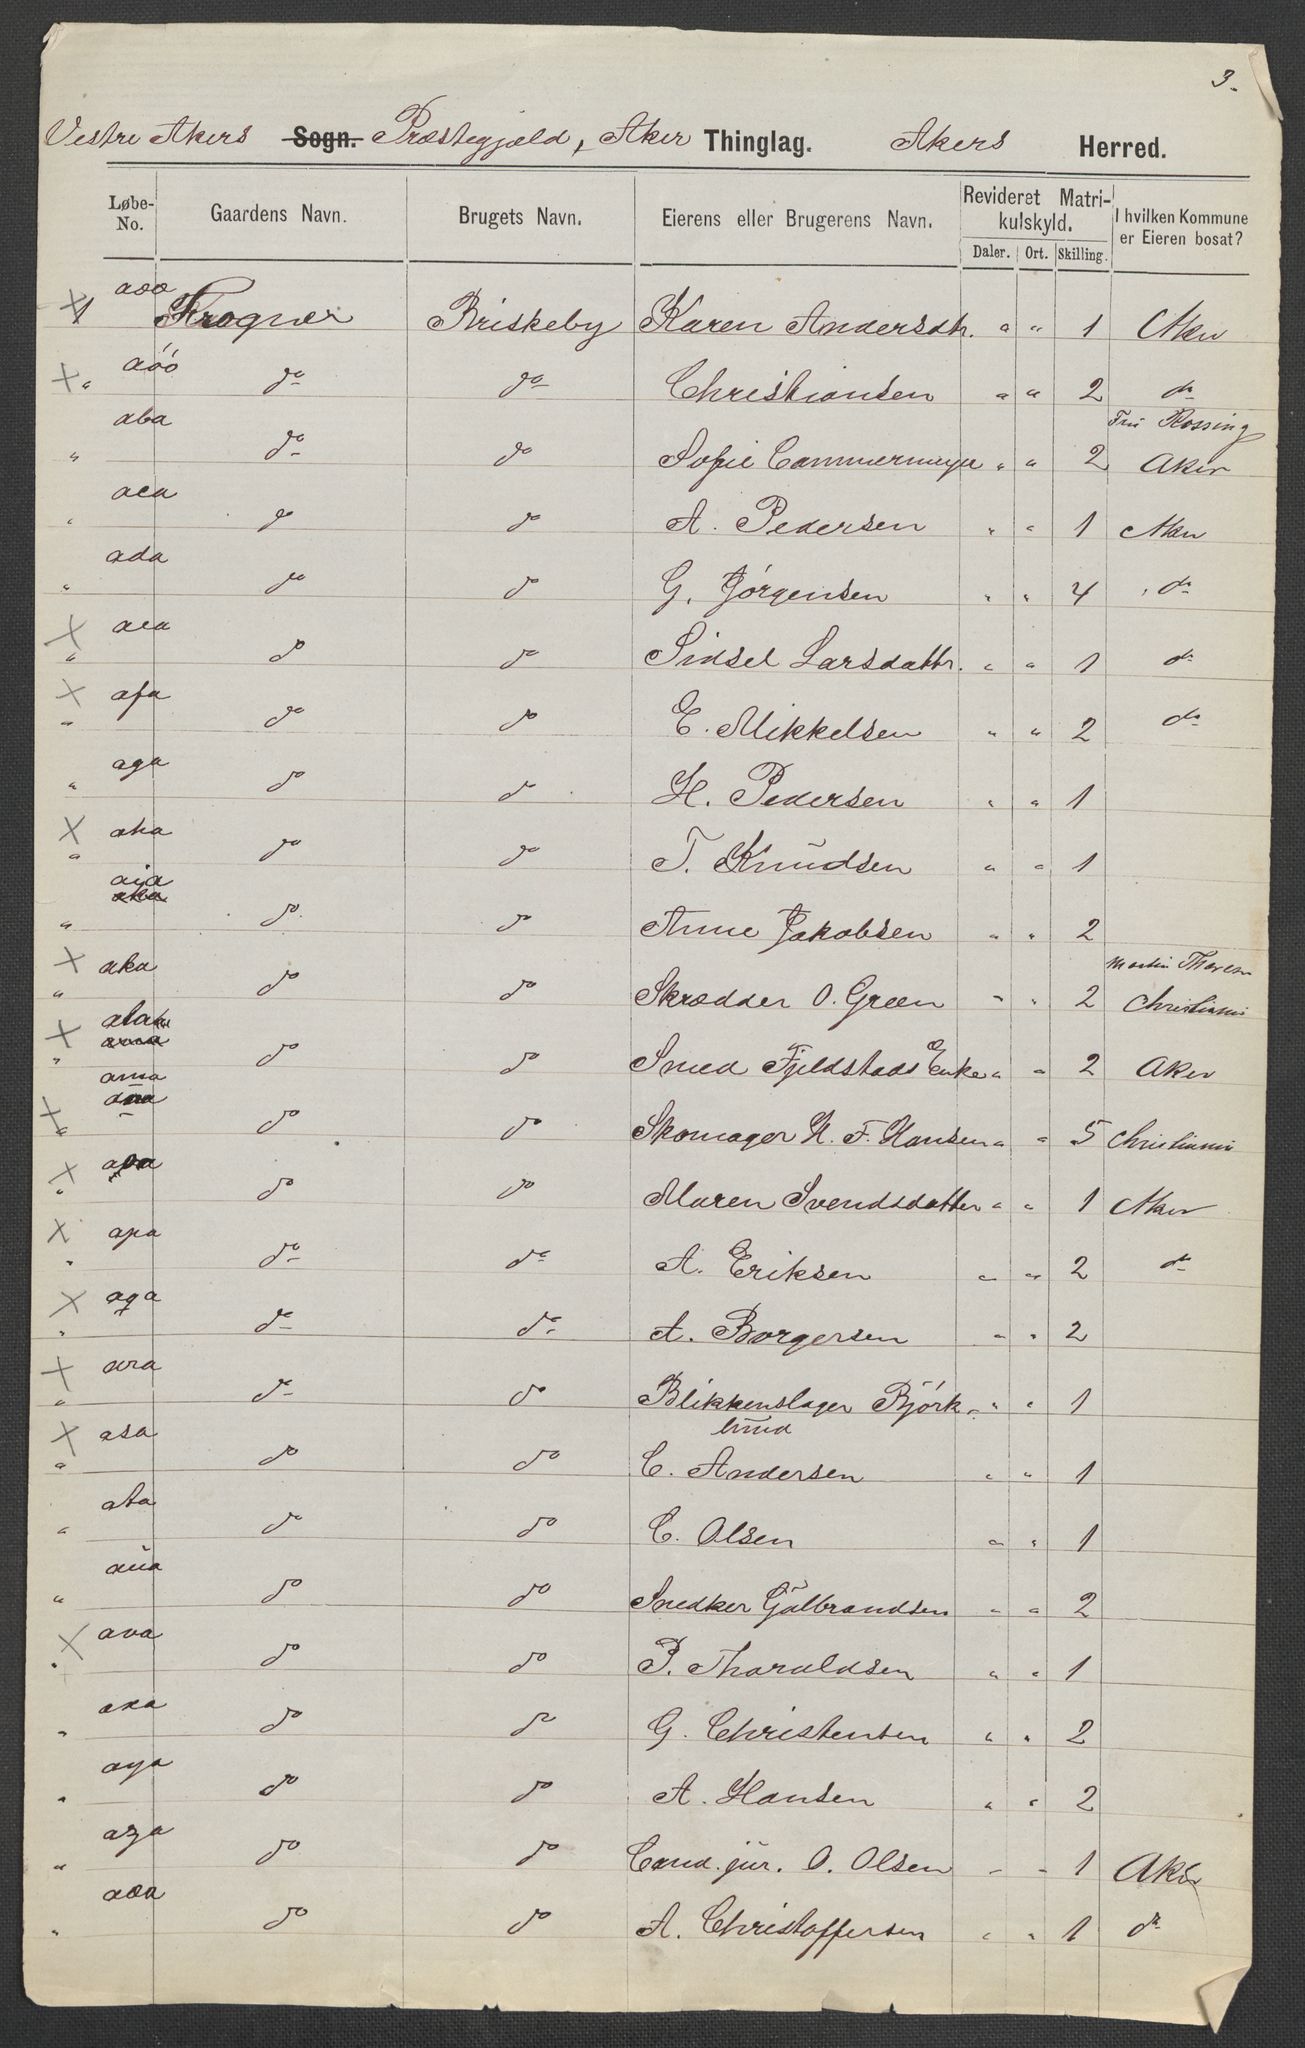 3.
Vestre Akers Sogn. Præstegjæld, Aker Thinglag. Akers Herred.
Løbe-No. Gaardens Navn. Brugets Navn. Eierens eller Brugerens Navn. Revideret Matrikulskyld. I hvilken Kommune er Eieren bosat?
Daler. Ort. Skilling.
1 aøæ Frogner Briskeby Karen Andersdtr. " " 1 Aker
" aöö do do Christiansen " " 2 do
Fru Rossing
" aba do do Sofie Cammermeyer " " 2 Aker
" aca do do A. Pedersen " " 1 Aker
" ada do do G. Jørgensen " " 4 do
" aea do do Sidsel Larsdattr. " " 1 do
" afa do do E. Mikkelsen " " 2 do
" aga do do H. Pedersen " " 1
" aha do do T. Knudsen " " 1
" aia do do Anne Jakobsen " " 2
" aka do do Skrædder O. Green " " 2 Christiania
" ala do do Smed Fjeldstads Enke " " 2 Aker
" ama do do Skomager H. F. Hansen " " 5 Christiania
" do do Maren Svendsdatter " " 1 Aker
" apa do do A. Eriksen " " 2 do
" aqa do do A. Borgersen " " 2
" ara do do Blikkenslager Björk- " " 1
lund
" asa do do C. Andersen " " 1
" ata do do C. Olsen " " 1
" aua do do Snedker Gulbrandsen " " 2
" ava do do P. Tharaldsen " " 1
" axa do do G. Christensen " " 2
" aya do do A. Hansen " " 2
" aza do do Cand. jur. O. Olsen " " 1 Aker
" aæa do do A. Christoffersen " " 1 do